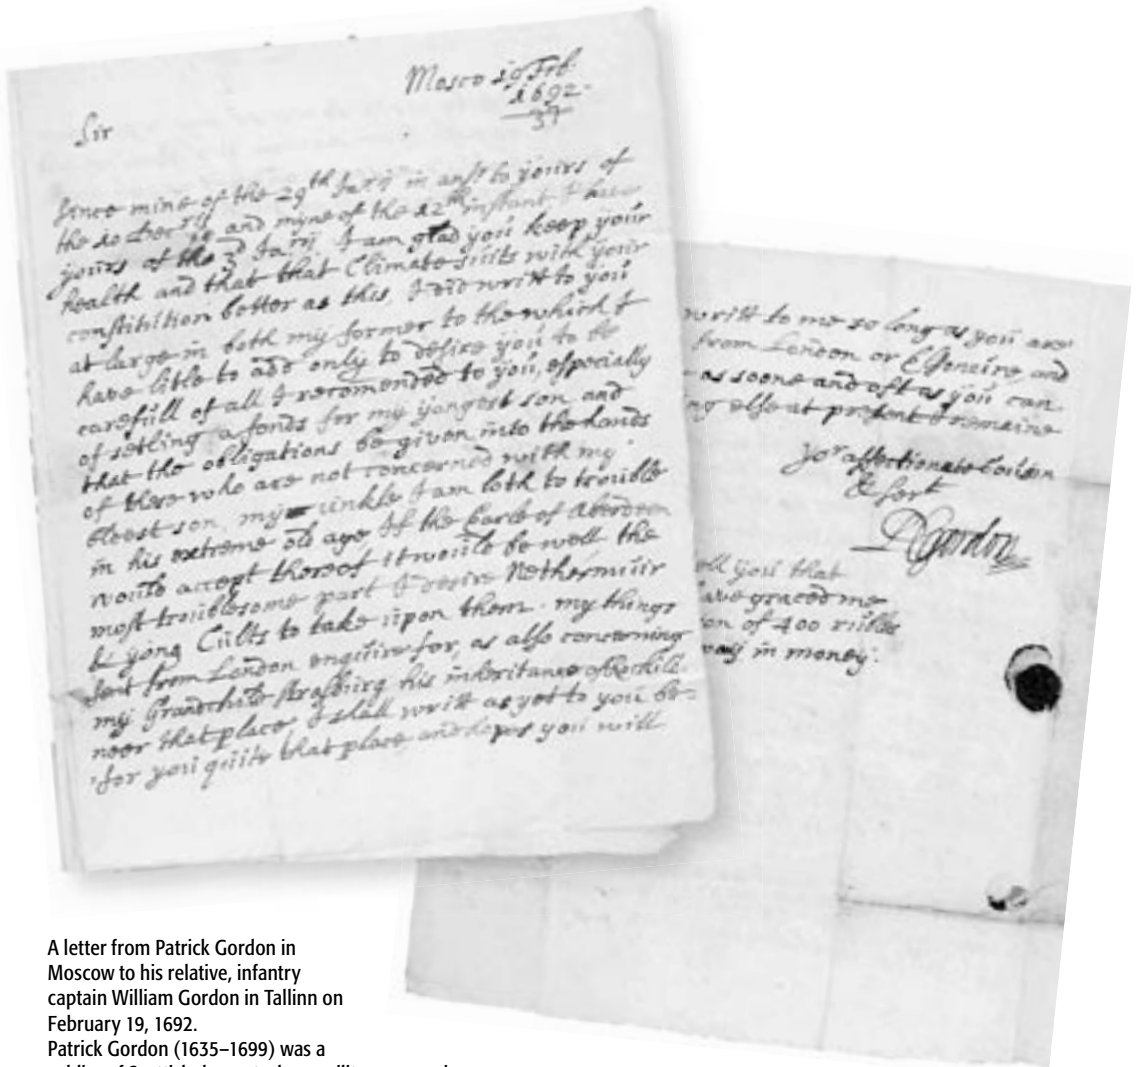 Mosco 19 Feb:
1692
37
Sir
Since mine of the 29th Jarij in answr to yours of
the 10 Decris and myne of the 12th instant I have
yours of the 3d Jarij I am glad you keep your
health and that that Climate suits with your
constitution better as this, I did writt to you
at large in both my former to the which I
have litle to add only to desire you to be
carefull of all I recomended to you, especially
of setling a fonds for my yongest son and
that the obligations be given into the hands
of these who are not concerned with my
eldest son, my unkle I am loth to trouble
in his extreme old age If the Barde of Aberdeen
would accept thereof it would be well the
most troublesome part I desire Nethermuir
& yong Cults to take upon them. my things
sent from London enquire for, as also concerning
my Grandchild Strasburg his inheritance
neer that place I shall writt as yet to you be=
for you quite that place and hopes you will
writt to me so long as you are
from London or Elsewhere and
as soone and oft as you can.
ng else at present I remaine
yor affectionate Coussin
& sert
PGordon
ell you that
ave graced me
on of 400 rubles
way in money.
A letter from Patrick Gordon in
Moscow to his relative, infantry
captain William Gordon in Tallinn on
February 19, 1692.
Patrick Gordon (1635–1699) was a